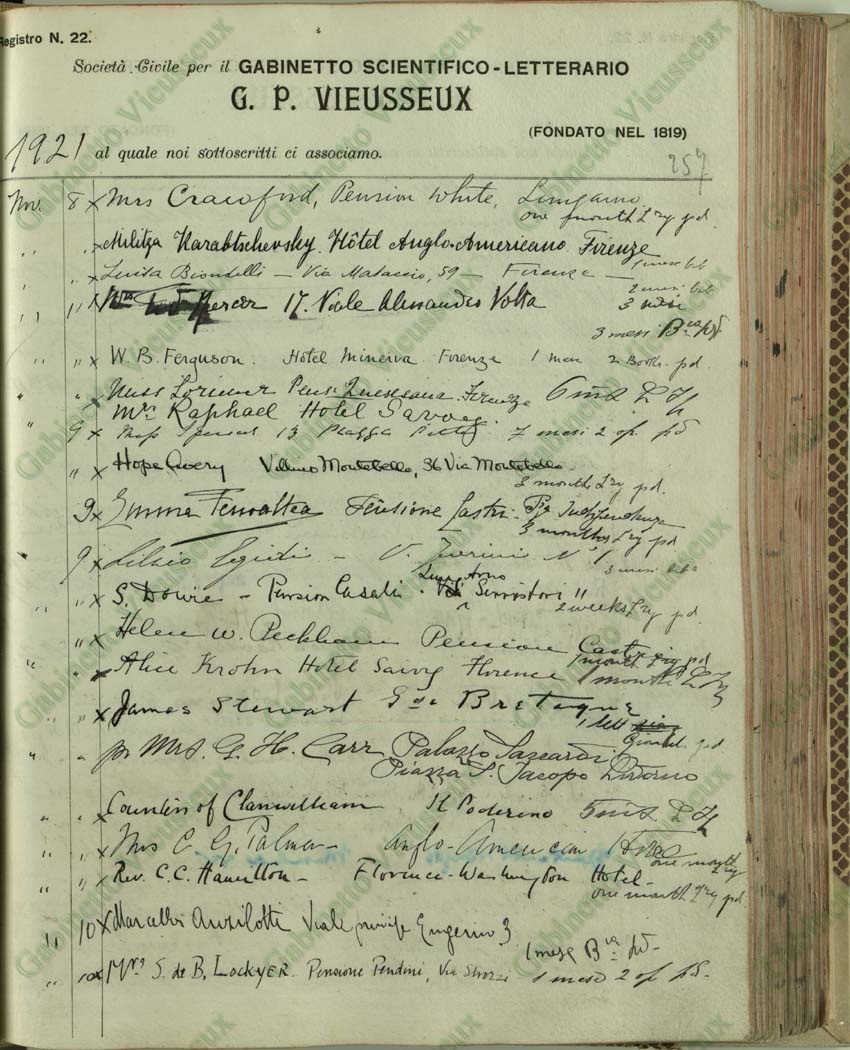 Registro N. 22.
Società Civile per il GABINETTO SCIENTIFICO-LETTERARIO
G. P. VIEUSSEUX
(FONDATO NEL 1819)
1921 al quale noi sottoscritti ci associamo.
257
Nov. 8 x Mrs Crawford, Pension White, Lungarno
one month Lry pd.
" " x Militza Karabtschevsky. Hôtel Anglo-Americano. Firenze
1 mese
" " x Luisa Biondelli — Via Masaccio, 59 — Firenze —
2 mesi
" " x Mercer 17. Viale Alessandro Volta 3 mesi
3 mesi Bca pd
" " x W. B. Ferguson. Hotel Minerva Firenze 1 mese 2 Books pd.
" " x Miss Lorimer Pens. Firenze 6
Mrs Raphael Hotel Savoy.
9 x Miss Spencer 13 Piazza Pitti 7 mesi 2 op. pd
" " x Hope Avery Villino Montebello, 36 Via Montebello
3 months Lry pd.
9 x Emma Pensione Castri. Pza Indipendenza
3 months Lry pd
9 x Egidi — V.
3 mesi
" " x S. Dowie — Pension Casali. Lung Arno Serristori
2 weeks Lry pd.
" " x Helen W. Peckham Pension Castri
1 month Lry pd
" " x Alice Krohn Hotel Savoy Florence 1 month
" " x James Stewart Gde Bretagne
" " pr Mrs. G. H. Carr Palazzo
Piazza S. Jacopo Livorno
" " x Countess of Clanwilliam Il Poderino
" " x Mrs C. G. Palmer — Anglo-American Hotel
one month Lry
" " x Rev. C. C. Hamilton — Florence-Washington Hotel —
one month Lry pd
" 10 x Anzilotti Viale principe Eugenio 3
1 mese Bca pd —
" 10 x Mrs S. de B. Lockyer. Pensione Pendini, Via Strozzi 1 mese 2 op pd.
Gabinetto Vieusseux